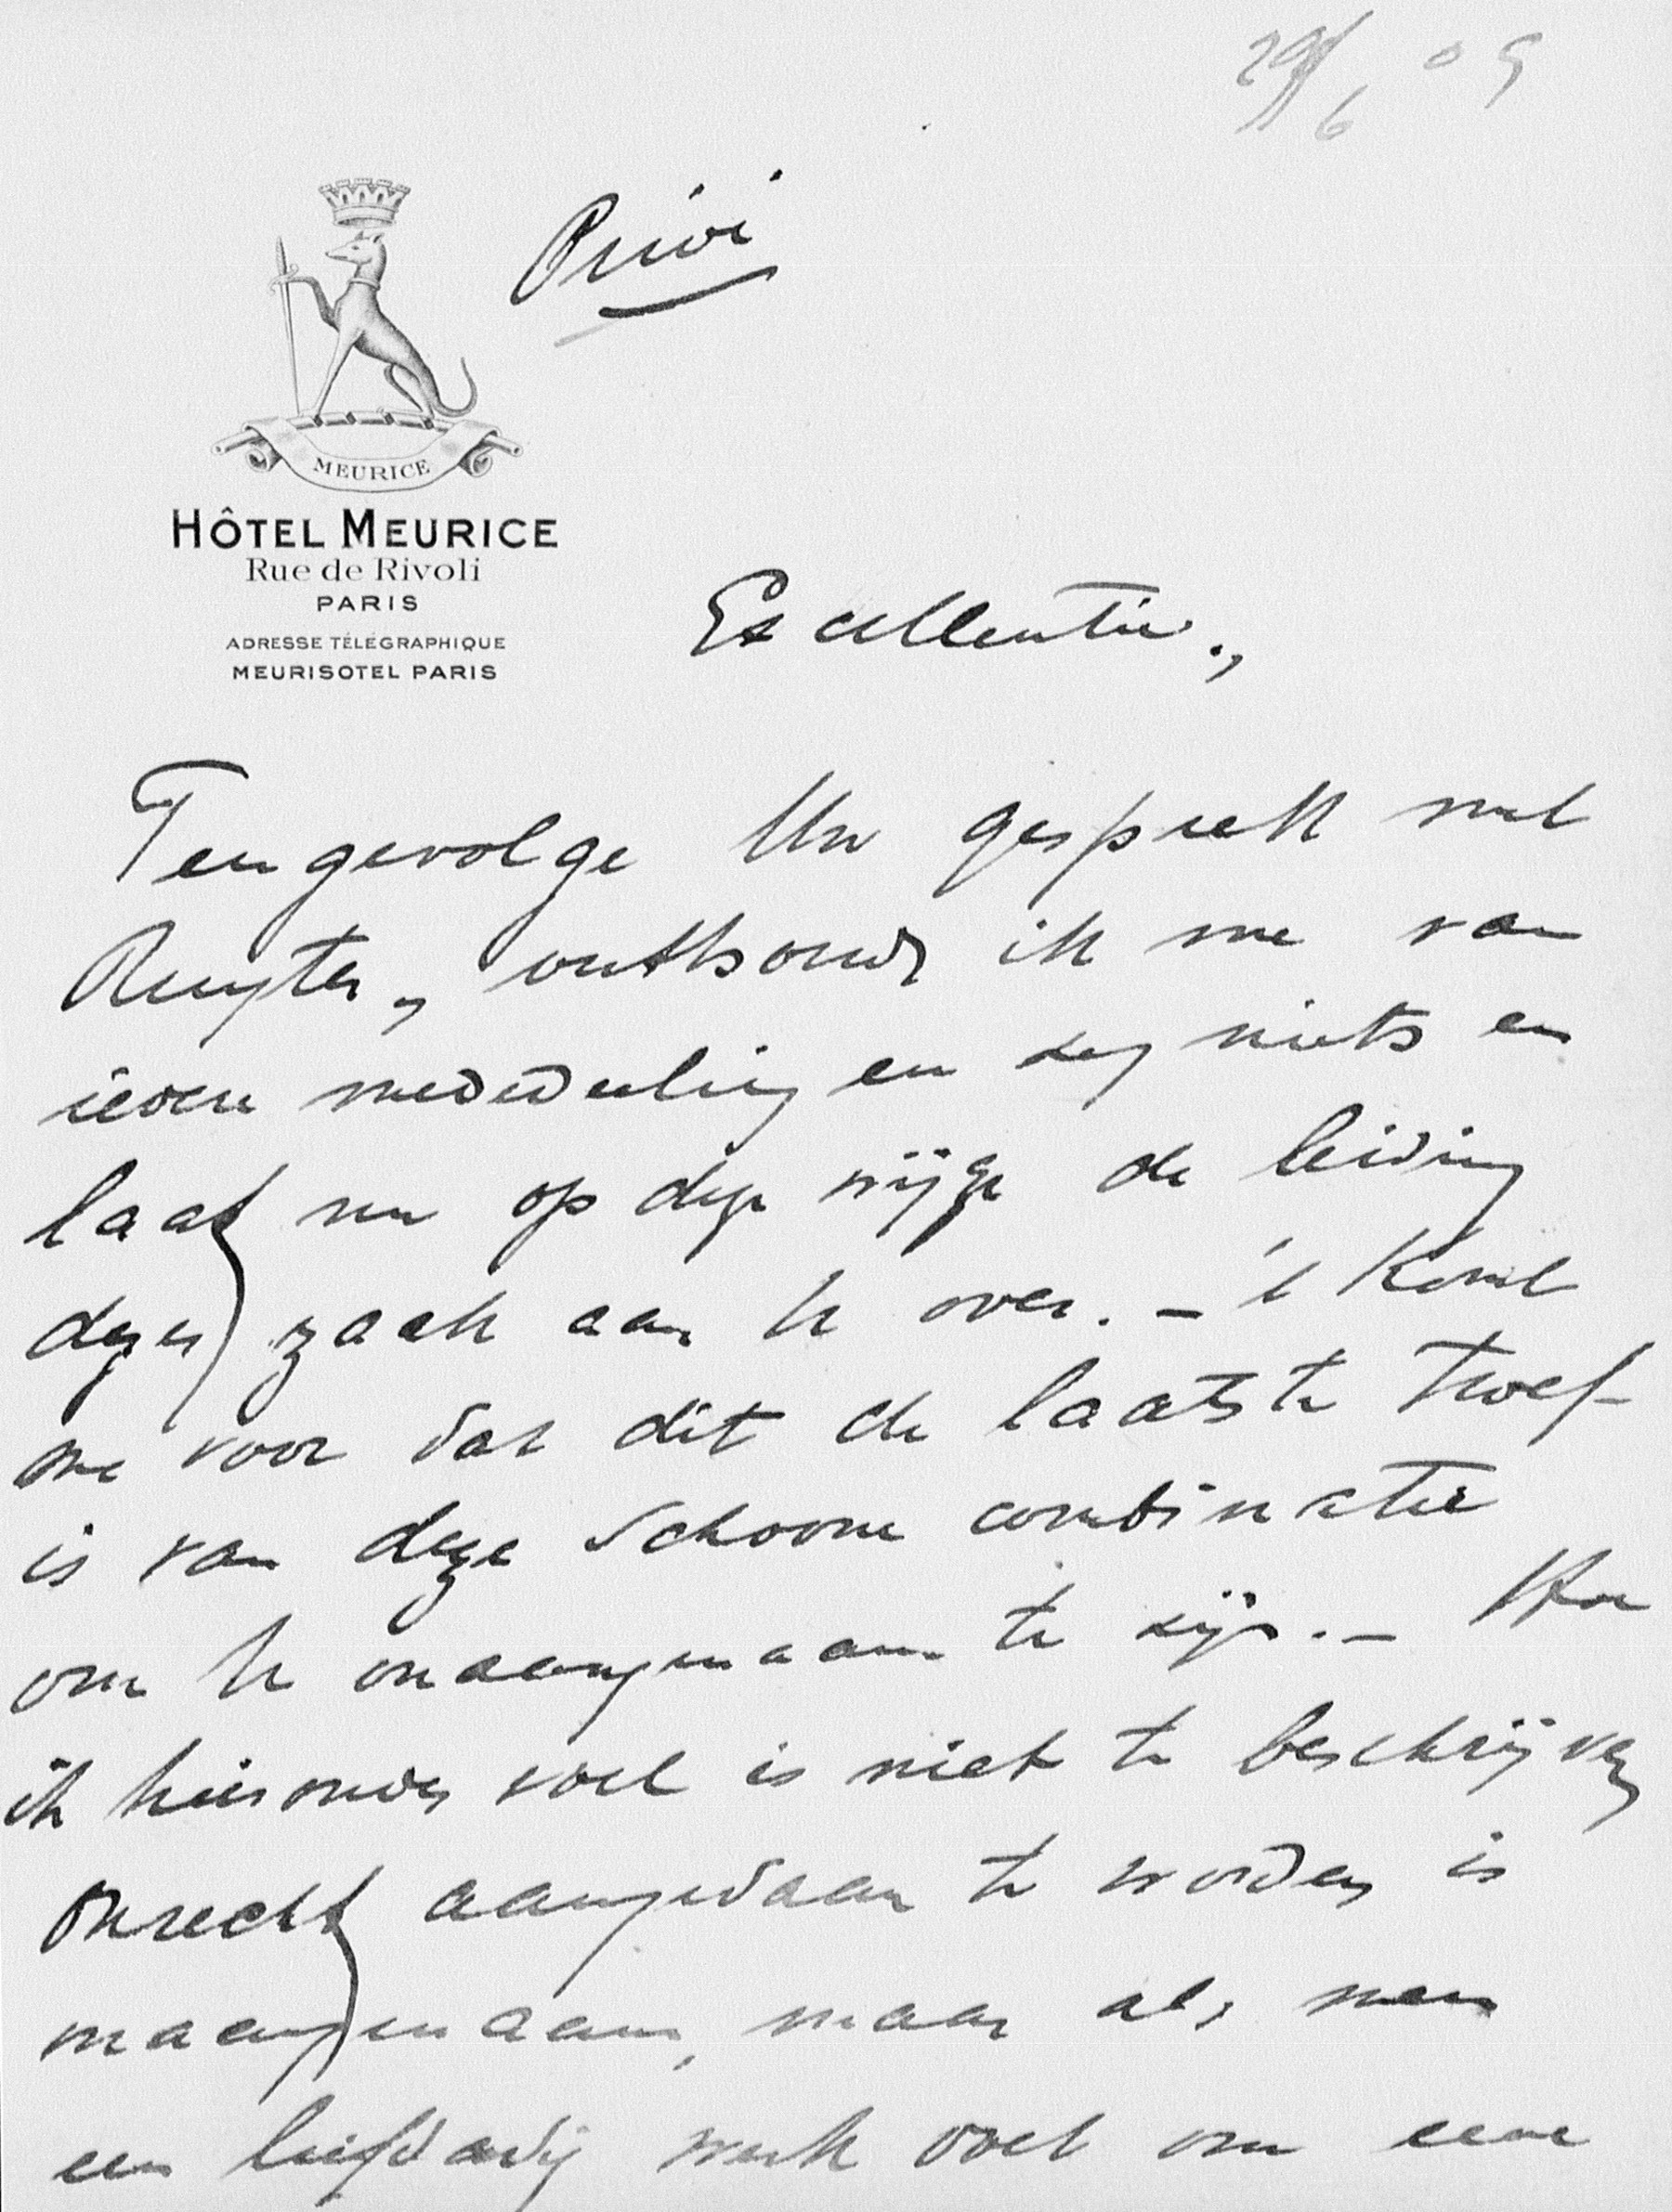 29/6 09
Privé
MEURICE
HÔTEL MEURICE
Rue de Rivoli
PARIS
ADRESSE TÉLÉGRAPHIQUE
MEURISOTEL PARIS
Excellentie.,
Tengevolge Uw gesprek met
Ruyter, onthoud ik me van
iedere mededeeling en zeg niets en
laat nu op deze wijze de leiding
dezer zaak aan U over. – 't Komt
me voor dat dit de laatste troef
is van deze schoone combinatie
om U onaangenaam te zijn. – Hoe
ik hieronder voel is niet te beschrijven
onrecht aangedaan te worden is
onaangenaam, maar als men
een liefdadig werk doet om eene